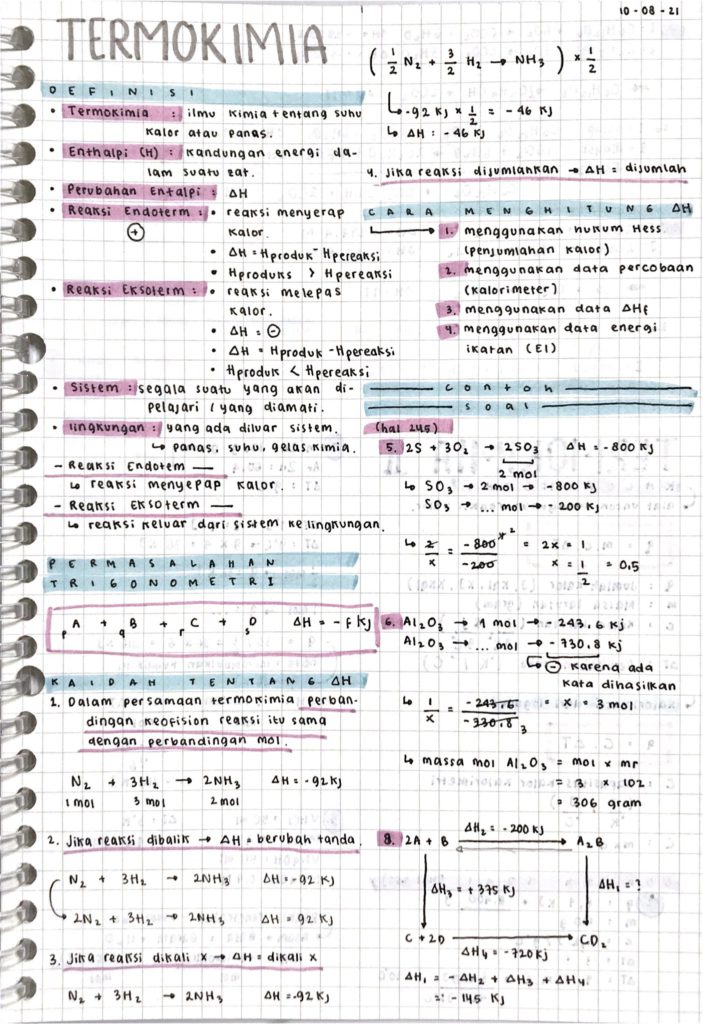 10-08-21
TERMOKIMIA
DEFINISI
• Termokimia : ilmu kimia tentang suhu
kalor atau panas.
• Enthalpi (H) : kandungan energi da-
lam suatu zat.
• Perubahan Entalpi : ΔH
• Reaksi Endoterm : • reaksi menyerap
⊕ kalor.
• ΔH = Hproduk - Hpereaksi
• Hproduks > Hpereaksi
• Reaksi Eksoterm : • reaksi melepas
kalor.
• ΔH = ⊖
• ΔH = Hproduk - Hpereaksi
• Hproduk < Hpereaksi
• Sistem : segala suatu yang akan di-
pelajari / yang diamati.
• lingkungan : yang ada diluar sistem.
↳ panas, suhu, gelas kimia.
- Reaksi Endotem —
↳ reaksi menyepap kalor.
- Reaksi Eksoterm —
↳ reaksi keluar dari sistem ke lingkungan.
PERMASALAHAN
TRIGONOMETRI
pA + qB + rC + sD ΔH = -f kJ
KAIDAH TENTANG ΔH
1. Dalam persamaan termokimia perban-
dingan keofision reaksi itu sama
dengan perbandingan mol.
N₂ + 3H₂ → 2NH₃ ΔH = -92 kJ
1 mol 3 mol 2 mol
2. Jika reaksi dibalik → ΔH = berubah tanda.
N₂ + 3H₂ → 2NH₃ ΔH = -92 kJ
2N₂ + 3H₂ → 2NH₃ ΔH = 92 kJ
3. Jika reaksi dikali x → ΔH = dikali x
N₂ + 3H₂ → 2NH₃ ΔH = -92 kJ
(1/2 N₂ + 3/2 H₂ → NH₃) × 1/2
↳ -92 kJ × 1/2 = -46 kJ
↳ ΔH : -46 kJ
4. Jika reaksi dijumlahkan → ΔH = dijumlah
CARA MENGHITUNG ΔH
1. menggunakan hukum Hess
(penjumlahan kalor)
2. menggunakan data percobaan
(kalorimeter)
3. menggunakan data ΔHf
4. menggunakan data energi
ikatan (EI)
contoh
soal
(hal 245)
5. 2S + 3O₂ → 2SO₃ ΔH = -800 kJ
2 mol
↳ SO₃ → 2 mol → -800 kJ
SO₃ → ... mol → -200 kJ
↳ 2/x = -800/-200 ² = 2x = 1
x = 1/2 = 0,5
6. Al₂O₃ → 1 mol → -243,6 kJ
Al₂O₃ → ... mol → -730,8 kJ
↳ ⊖ karena ada
kata dihasilkan
↳ 1/x = -243,6/-730,8 3 = x = 3 mol
↳ massa mol Al₂O₃ = mol × mr
= 3 × 102
= 306 gram
8. 2A + B ΔH₂ = -200 kJ A₂B
ΔH₃ = +375 kJ ΔH₁ = ?
C + 2D ΔH₄ = -720 kJ CD₂
ΔH₁ = -ΔH₂ + ΔH₃ + ΔH₄
= -145 kJ